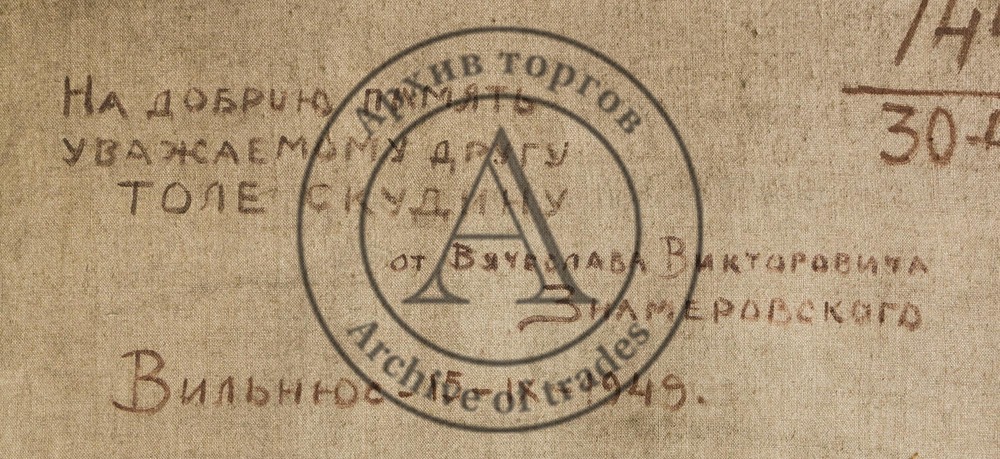 На добрую память
уважаемому другу
Толе Скудину
от Вячеслава Викторовича
Знамеровского
Вильнюс - 15 - IX - 1949.
30-
Архив торгов
Archive of trades